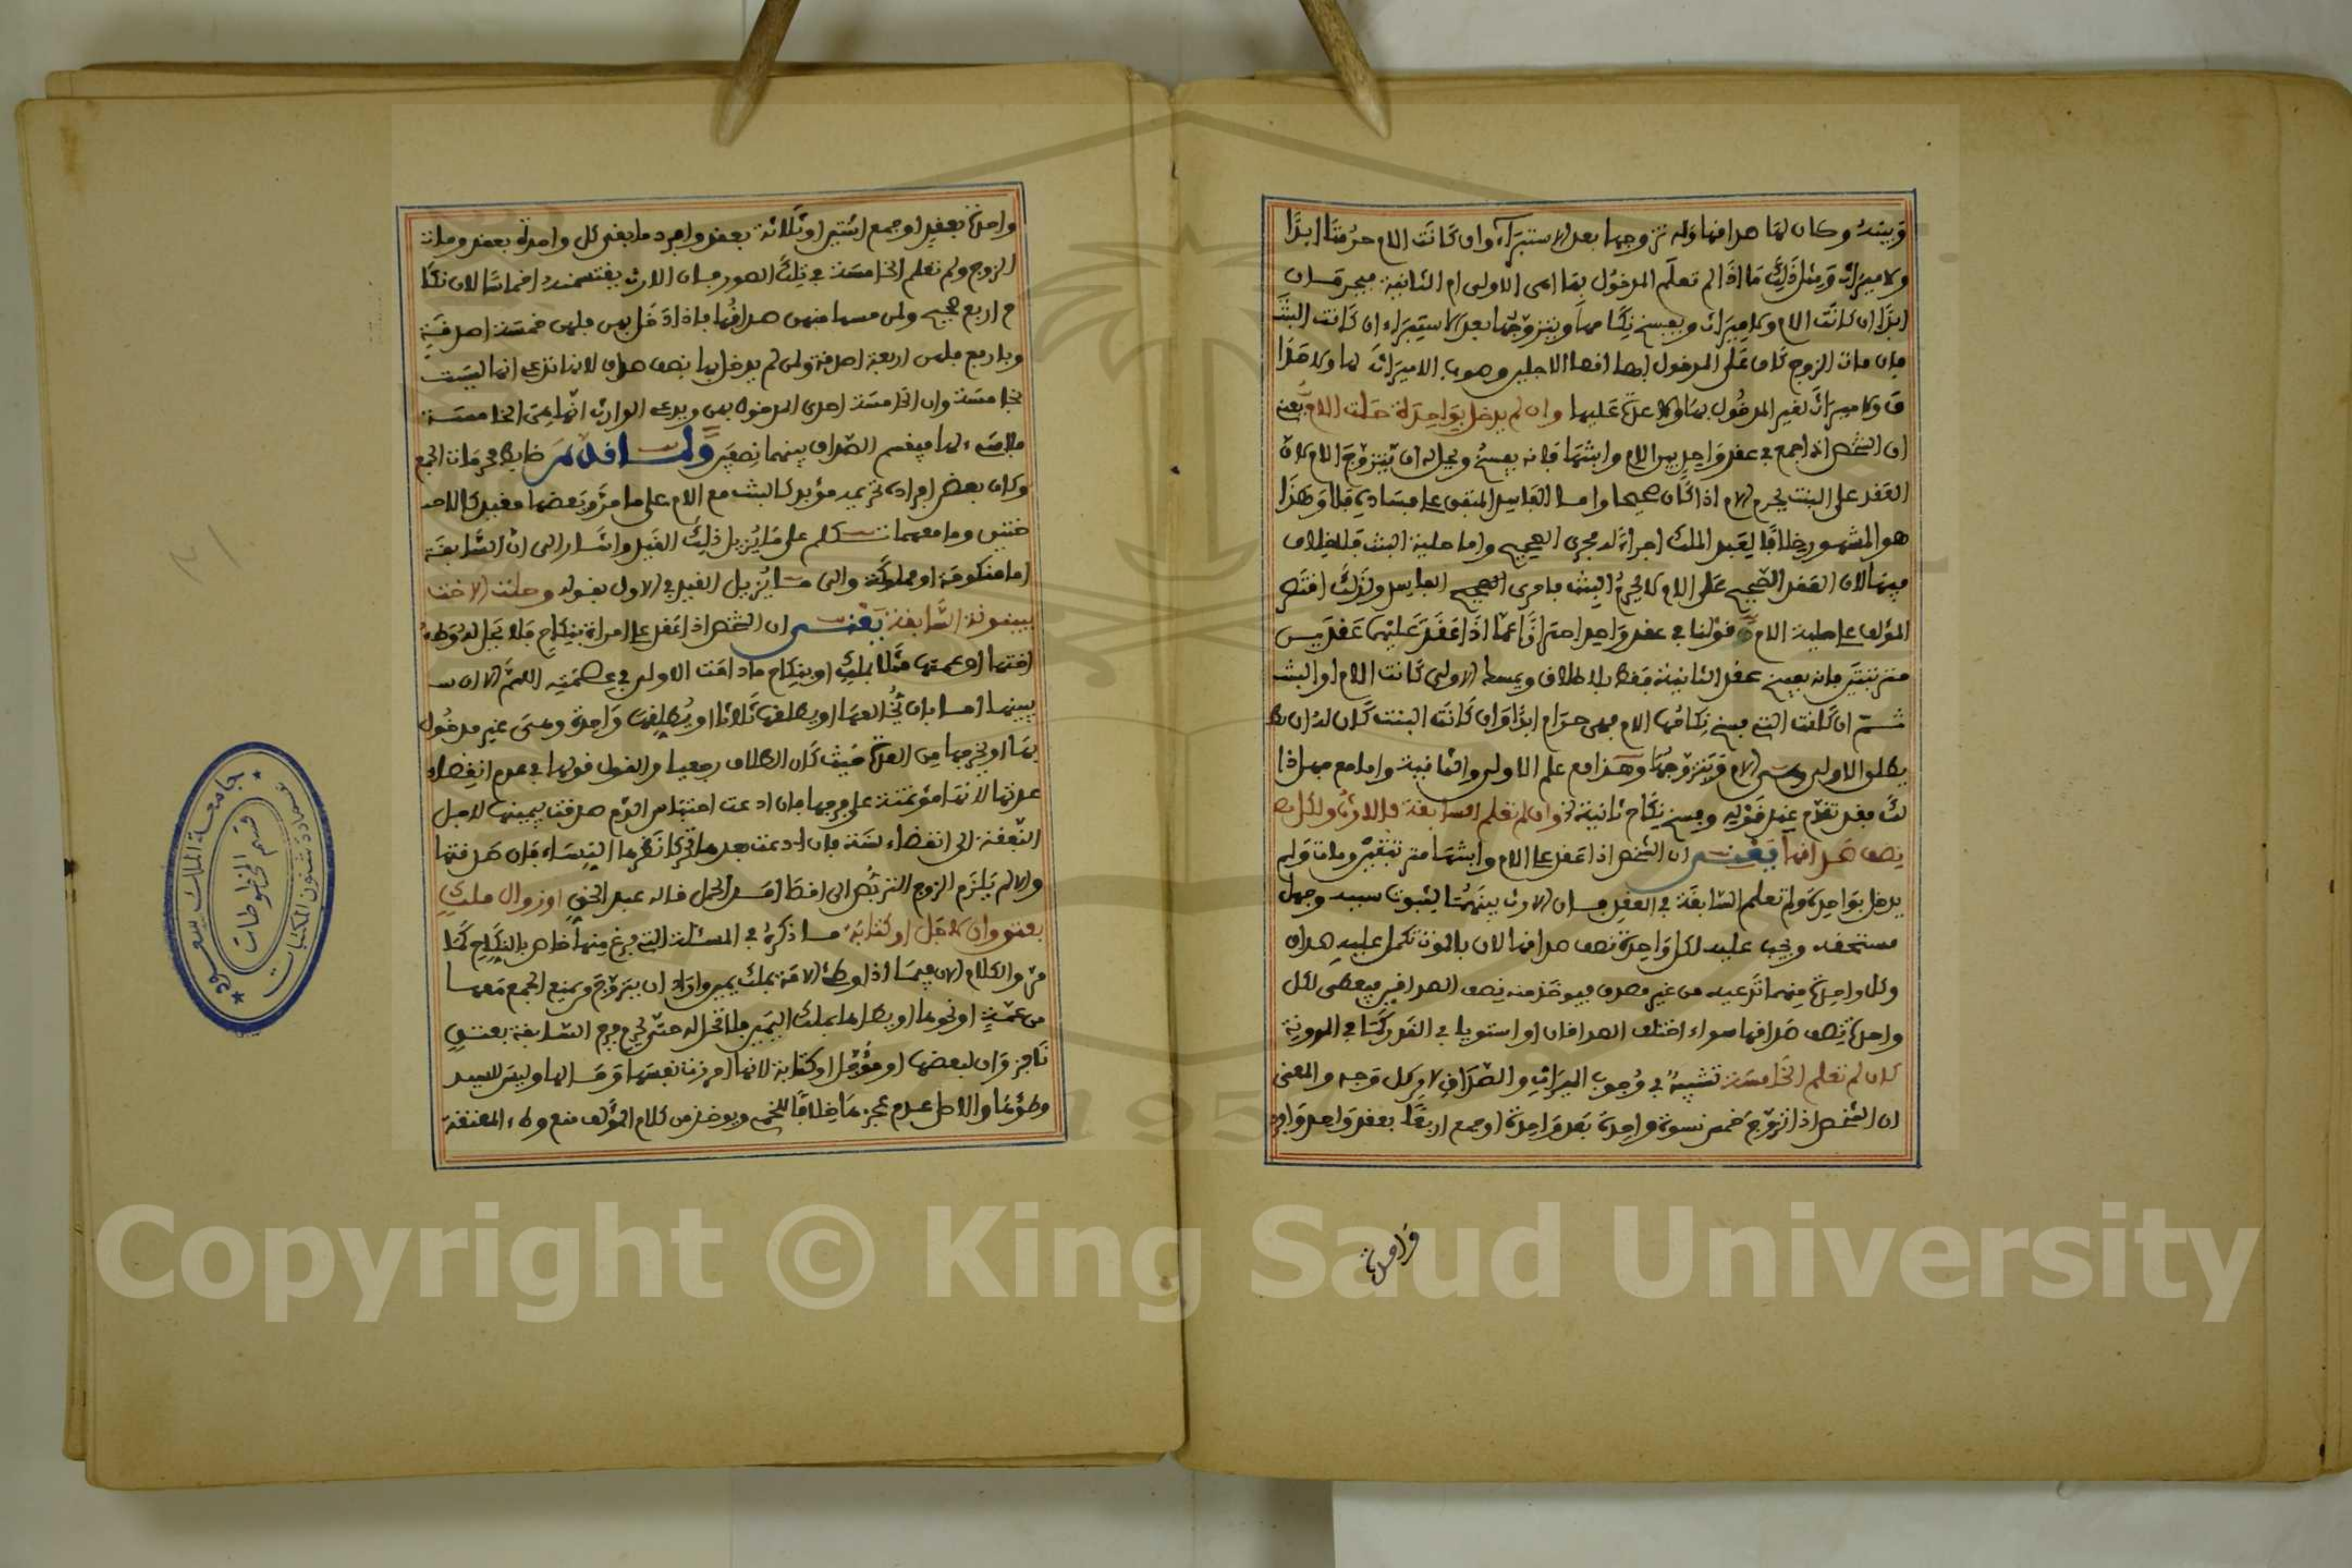 وبينه وكان لها صداقها وله تزوجها بعد الاستبراء وان كانت الام حرمتا ابدا
ولا ميراث ومثل ذلك ما اذا لم تعلم المدخول بها اهي الاولى ام الثانية فيحرمان
ابدا ان كانت الام ولا ميراث ويفسخ نكاحها ويتزوجها بعد الاستبراء ان كانت البنت
فان مات الزوج كان على المدخول بها اقصا الاجلين وهو الا ميراث لها ولا صدا
ق ولا ميراث لغير المدخول بها ولا عدة عليها وان لم يدخل بواحدة حلت الام يعني
ان الشخص اذا جمع في عقد واحد بين الام وابنتها فانه يفسخ ويحل له ان يتزوج الام لان
العقد على البنت يحرم الام اذا كان صحيحا واما الفاسد المتفق على فساده فلا وهذا
هو المشهور خلافا لعبد الملك اجراه مجرى الصحيح واما حلية البنت فلا خلاف
فيها لان العقد الصحيح على الام لا يحرم البنت فاحرى الفاسد ولذلك اقتصر
المؤلف على حلية الام وقولنا في عقد واحد احترازا عما اذا عقد عليهما عقدين
مترتبتين فانه يفسخ عقد الثانية فقط بلا طلاق ويمسك الاولى كانت الام او البنت
ثم ان كانت التي فسخ نكاحها الام فهي حرام ابدا وان كانت البنت كان له ان يط
يطلق الاولى وهي الام ويتزوجها وهذا مع علم الاولى والثانية واما مع جهل ذا
لك فقد تقدم عند قوله وفسخ نكاح ثانية وان لم تعلم السابقة فالارث ولكل نصف
نصف صداقها يعني ان الشخص اذا عقد على الام وابنتها مترتبتين ومات ولم
يدخل بواحدة ولم تعلم السابقة في العقد فان الارث بينهما لثبوت سببه وجهل
مستحقه ويجب عليه لكل واحدة نصف صداقها لان بالموت تكمل عليه صداق
وكل واحدة منهما تدعيه من غير مصدق فيوخذ منه نصف الصداقين فيعطى لكل
واحدة نصف صداقها سواء اختلف الصداقان او استويا في القدر كما في المدونة
كان لم تعلم الخامسة تشبيه في وجوب الميراث والصداق لا من كل وجه والمعنى
ان الشخص اذا تزوج خمس نسوة واحدة بعد واحدة او جمع اربعا بعقد واحد وافرد
واحدة
واحدة بعقد او جمع اثنتين او ثلاثة بعقد وافرد ما بقي كل واحدة بعقد ومات
الزوج ولم تعلم الخامسة في تلك الصور فان الارث يقتسمنه اخماسا لان نكا
ح اربع صحيح ولمن مسها منهن صداقها فاذا دخل بهن فلهن خمسة اصدقة
وباربع فلهن اربعة اصدقة ولمن لم يدخل بها نصف صداق لانها تدعي انها ليست
بخامسة وان الخامسة احدى المدخول بهن ويدعي الوارث انها هي الخامسة
فلا شيء لها فيقسم الصداق بينهما نصفين ولما قدم ضابط محرمات الجمع
وكان بعض افراده تحريمه مؤبد كالبنت مع الام على ما مر وبعضها مقيد كالا
ختين وما معهما تكلم على ما يزيل ذلك القيد واشار الى ان السابقة
اما منكوحة او مملوكة والى ما يزيل القيد في الاول بقوله وحلت الاخت
ببينونة السابقة يعني ان الشخص اذا عقد على امراة بنكاح فلا يحل له وطء
اختها او عمتها مثلا بملك او بنكاح ما دامت الاولى في عصمته اللهم الا ان
يبينها اما بان يخالعها او يطلقها ثلاثا او يطلقها واحدة وهي غير مدخول
بها او يخرجها من العدة حيث كان الطلاق رجعيا والقول قولها في عدم انقضاء
عدتها لانها مؤتمنة على فرجها فان ادعت احتباس الدم صدقت بيمينها لاجل
النفقة الى انقضاء سنة فان ادعت بعدها تحركا نظرها النساء فان صدقتها
والا لم يلزم الزوج التربص الى اقصا امد الحمل قاله عبد الحق او زوال ملك
بعتق وان لاجل او كتابة ما ذكره في المسئلة التي فرغ منها خاص بالنكاح كما
مر والكلام الان فيما اذا وطئ الامة بملك يمين واراد ان يتزوج من يمنع الجمع معها
من عمة او نحوها او يطاها بملك اليمين فلا تحل له حتى يحرم فرج السابقة بعتق
ناجز وان لبعضها او مؤجل او كتابة لانها احرزت نفسها ومالها وليس للسيد
وطؤها والاصل عدم عجزها خلافا للخمي ويوخذ من كلام المؤلف منع وطء المعتقة
جامعة الملك سعود
عمادة شئون المكتبات
قسم المخطوطات
Copyright © King Saud University
1957